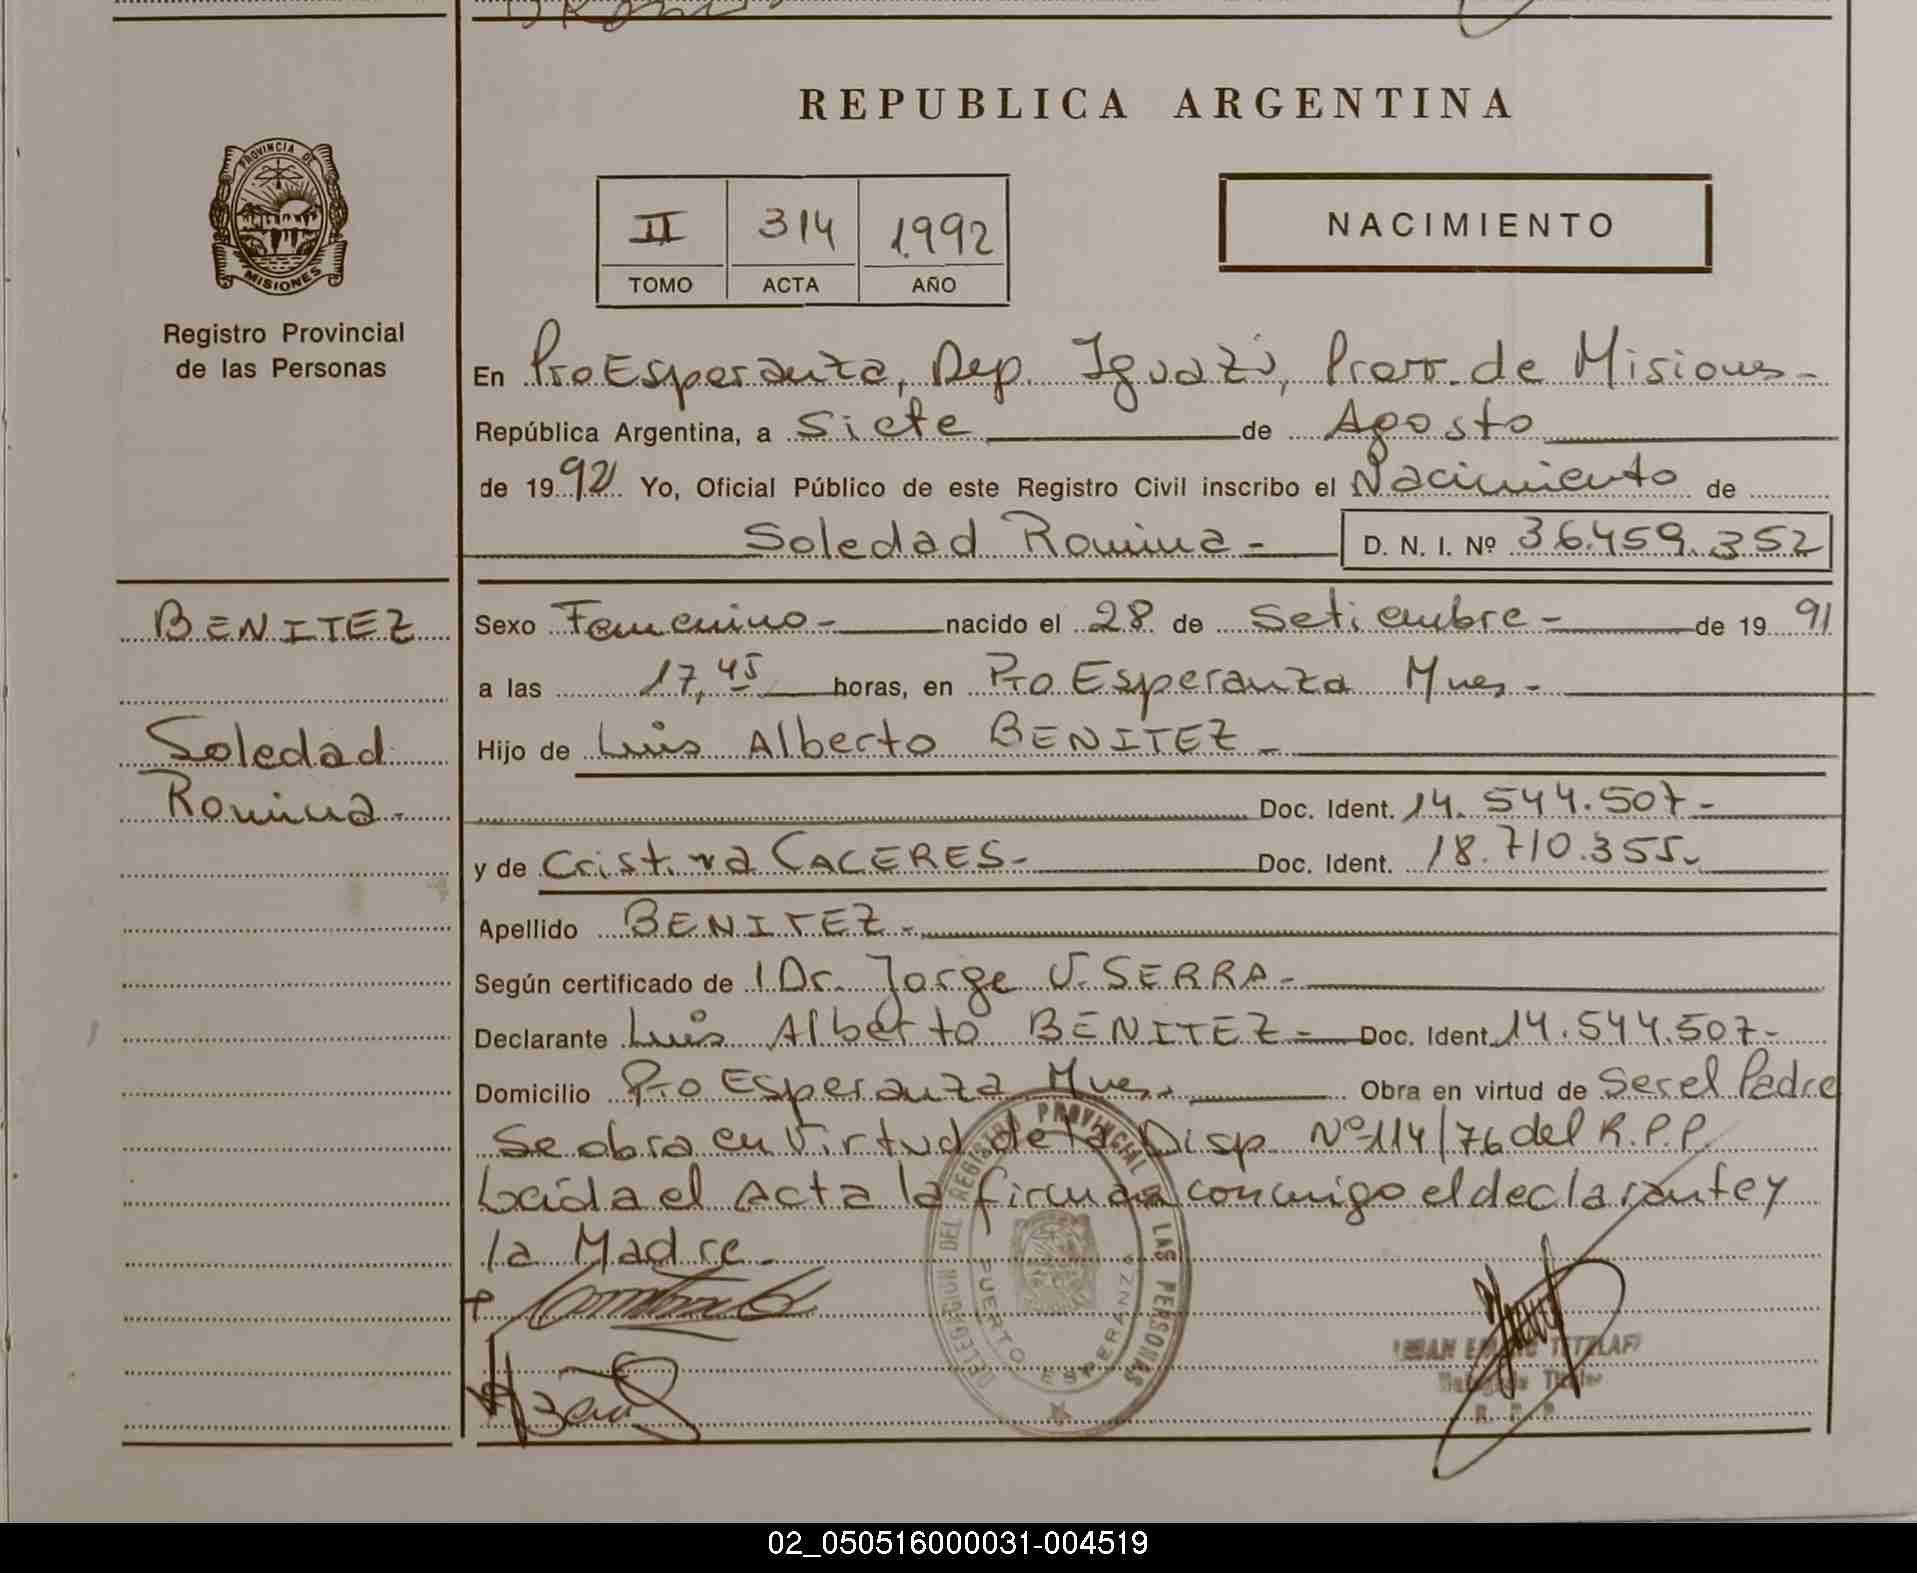 REPUBLICA ARGENTINA
PROVINCIA DE
MISIONES
Registro Provincial
de las Personas
II 314 1992
TOMO ACTA AÑO
NACIMIENTO
En Pto Esperanza, Dep. Iguazú, Prov. de Misiones-
República Argentina, a Siete de Agosto
de 1992 Yo, Oficial Público de este Registro Civil inscribo el Nacimiento de
Soledad Romina- D. N. I. Nº 36.459.352
BENITEZ
Soledad
Romina.-
Sexo Femenino- nacido el 28 de Setiembre- de 1991
a las 17,45 horas, en Pto Esperanza Mnes-
Hijo de Luis Alberto BENITEZ-
Doc. Ident. 14.544.507-
y de Cristina CACERES- Doc. Ident. 18.710.355.-
Apellido BENITEZ-
Según certificado de Dr. Jorge V. SERRA-
Declarante Luis Alberto BENITEZ- Doc. Ident. 14.544.507-
Domicilio Pto Esperanza Mnes. Obra en virtud de Ser el Padre
Se obra en Virtud de la Disp. Nº 114/76 del R.P.P.
Leída el Acta la firman conmigo el declarante y
la Madre.-
DELEGACION DEL REGISTRO PROVINCIAL DE LAS PERSONAS
PUERTO ESPERANZA
TETZLAFF
Titular
R. P. P.
02_050516000031-004519